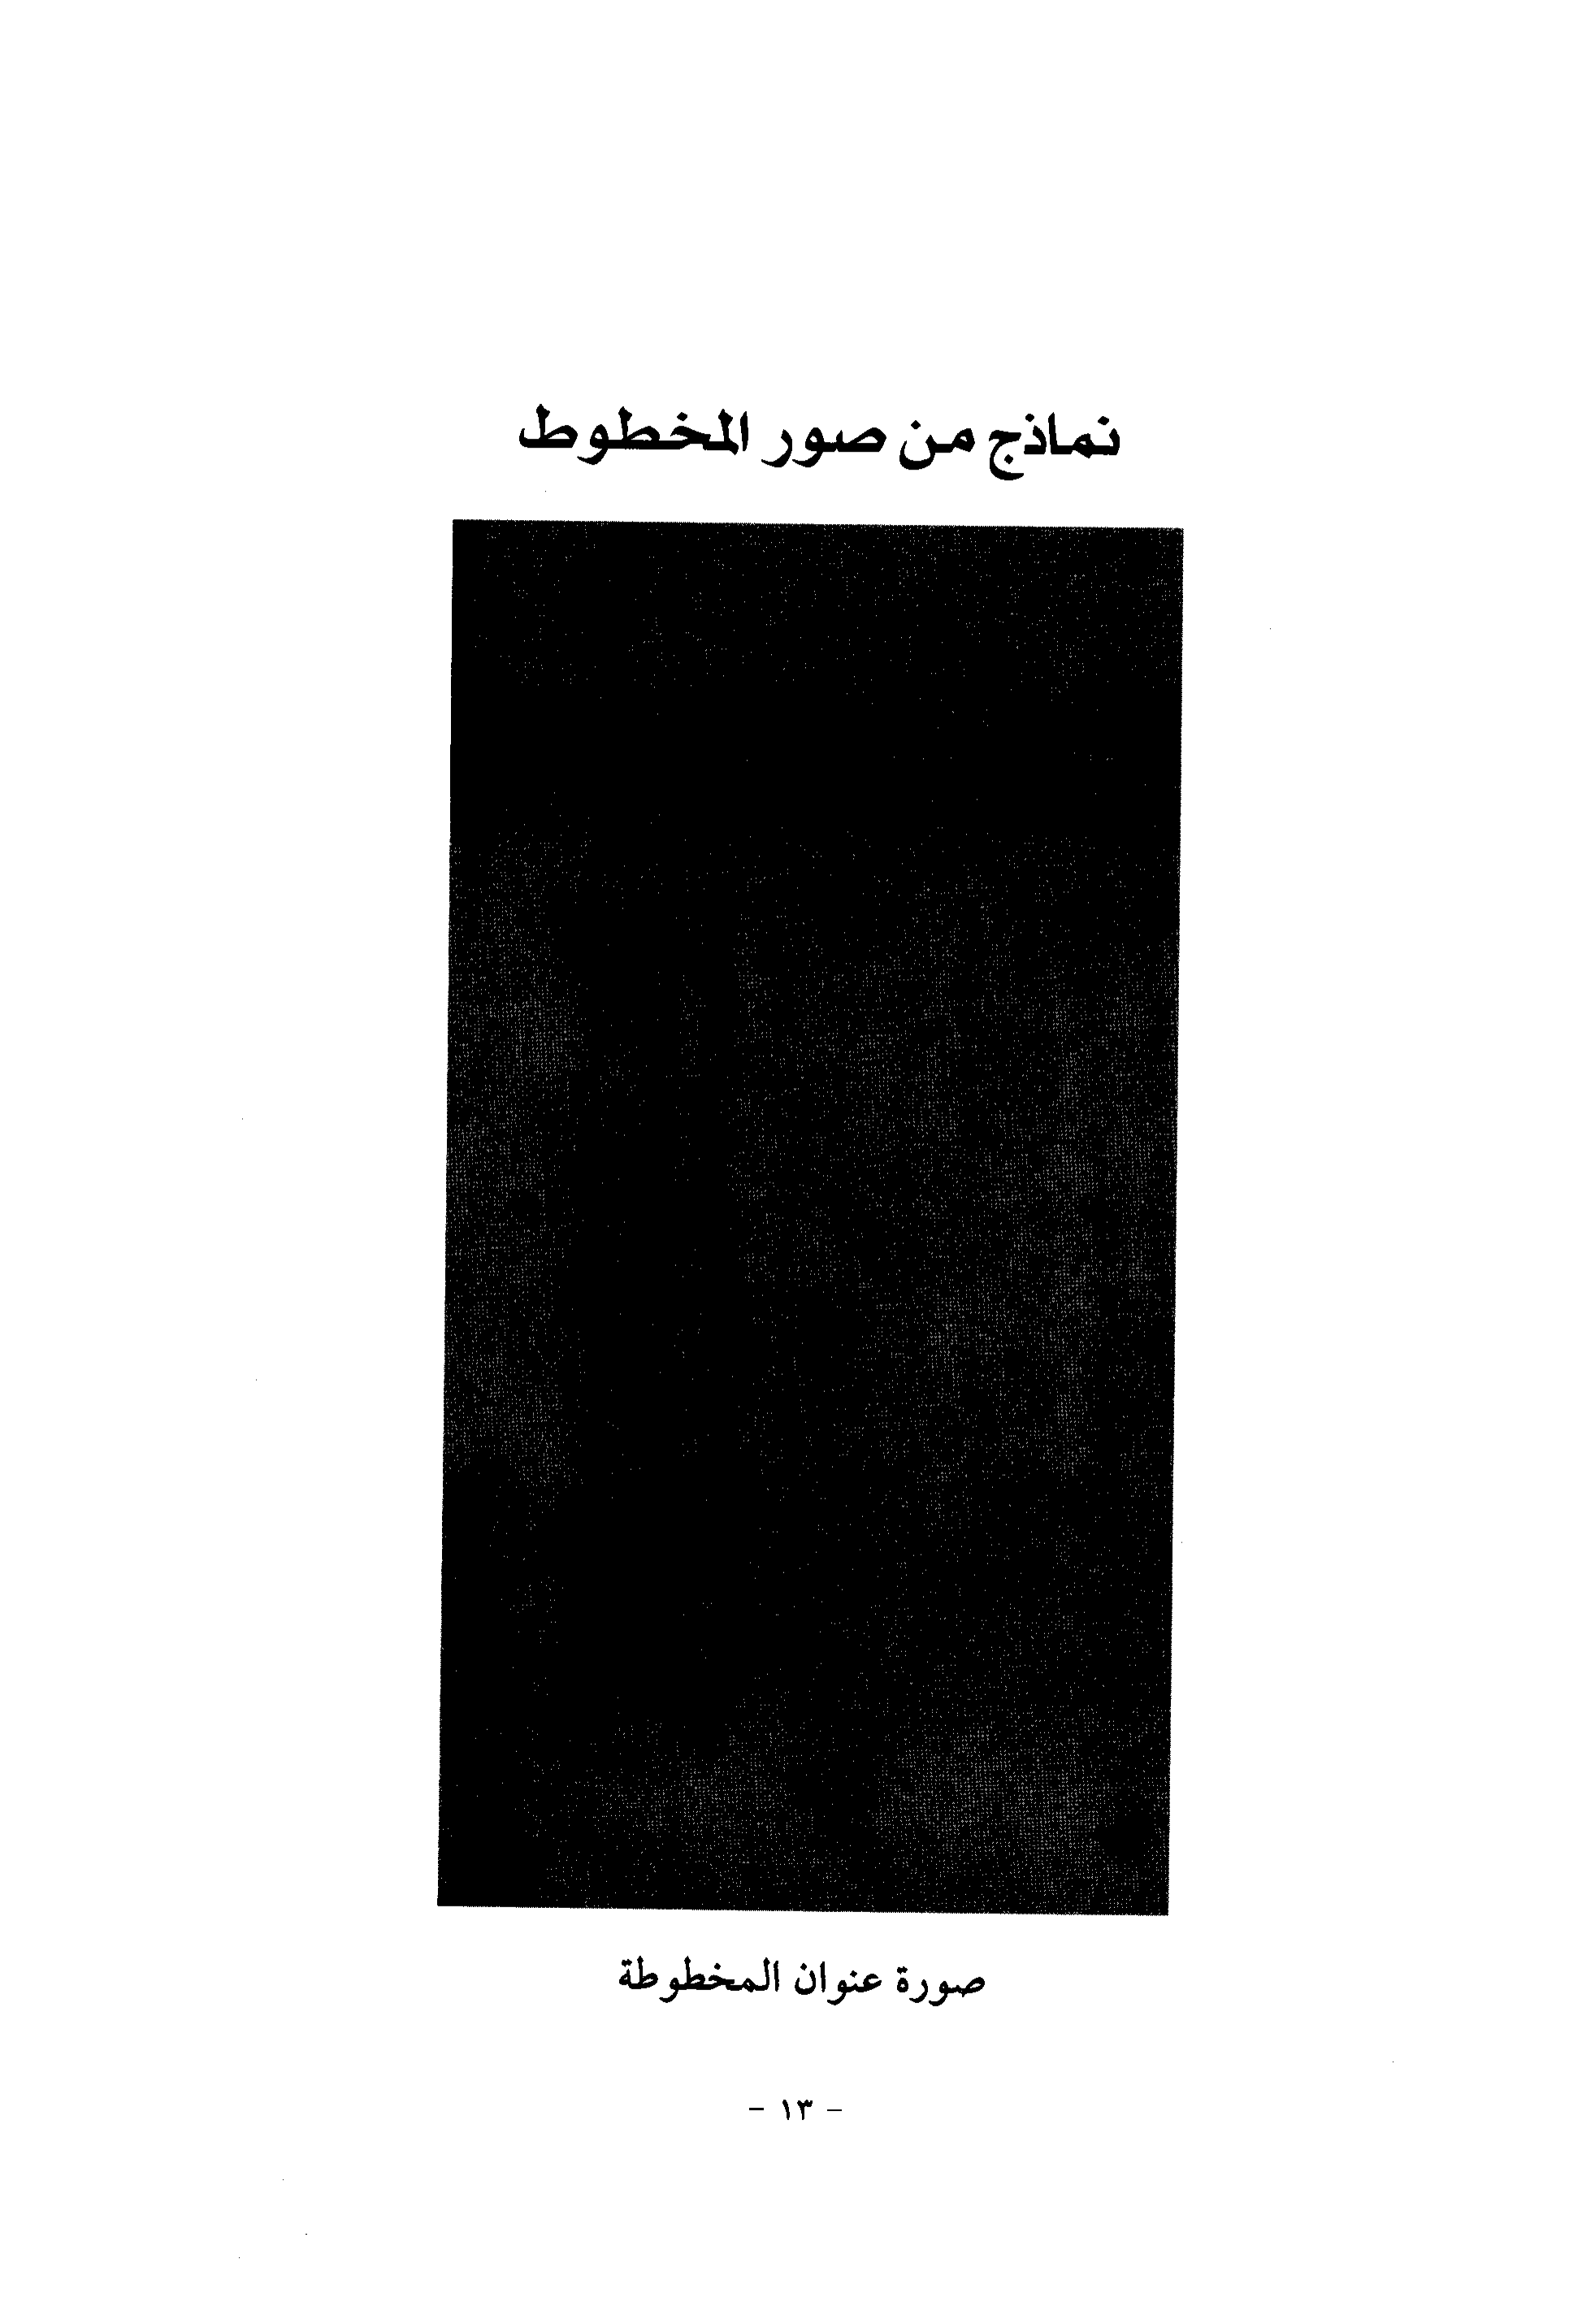 نماذج من صور المخطوط
صورة عنوان المخطوطة
- ١٣ -